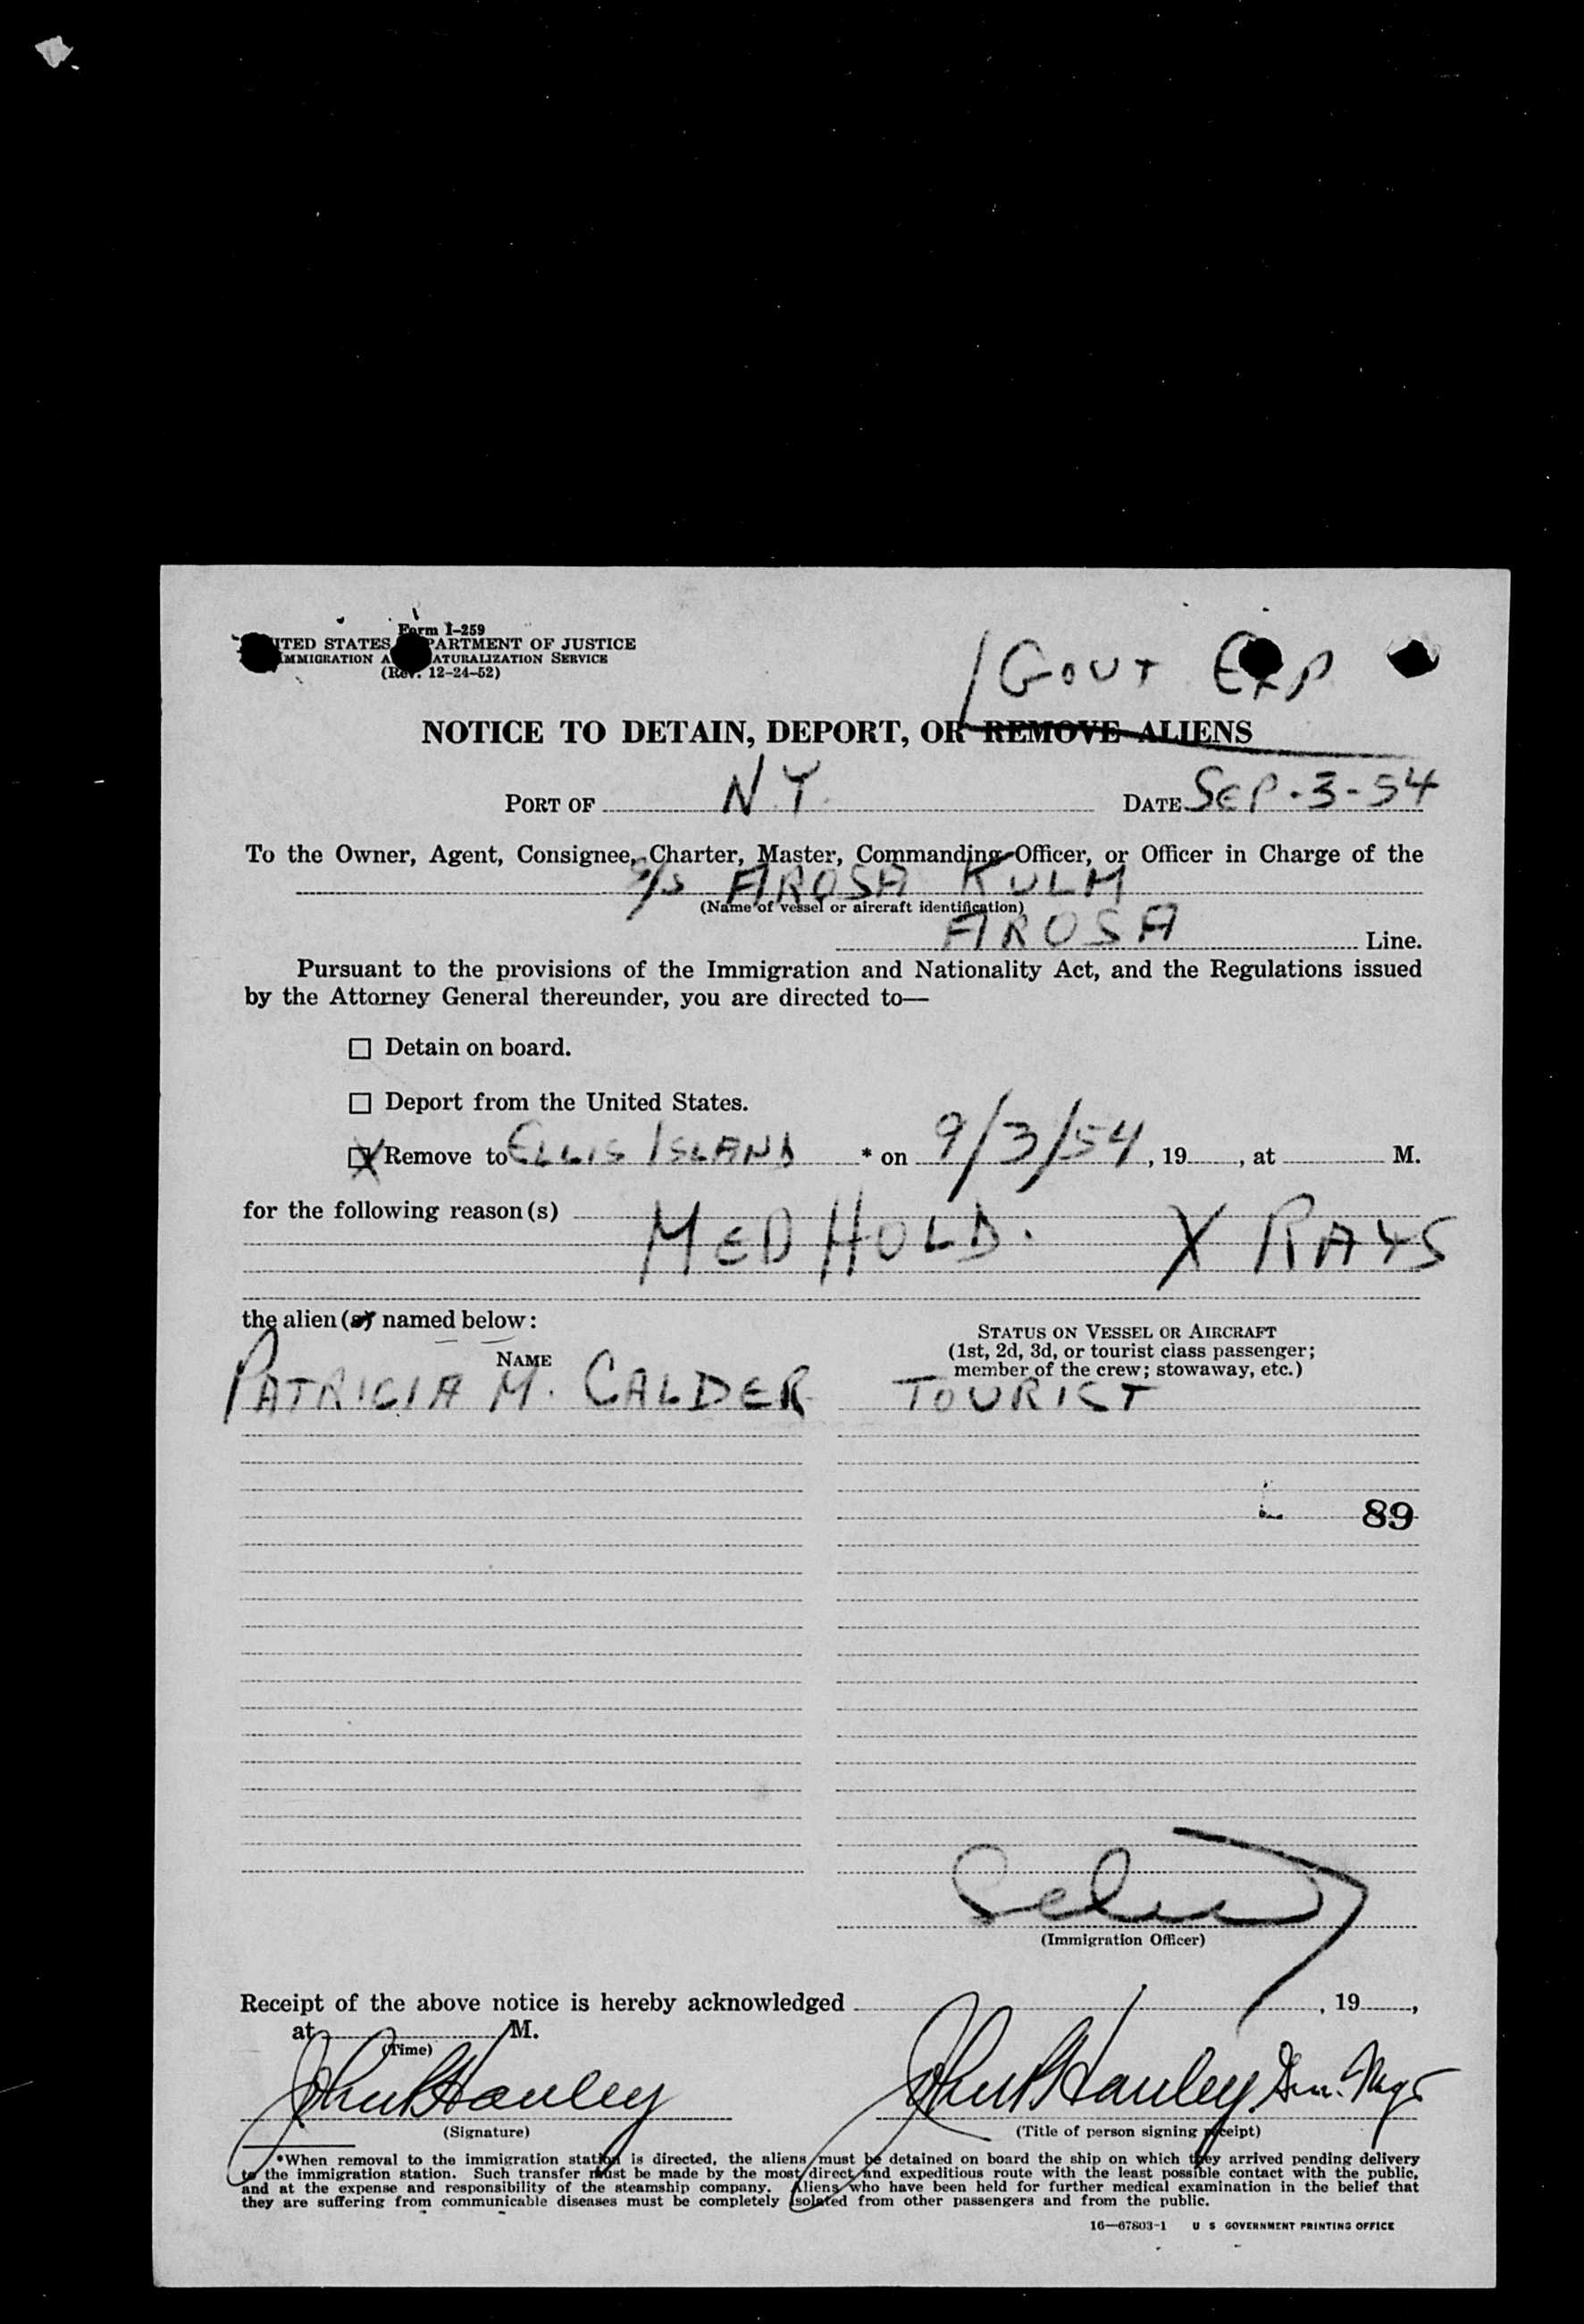 Form I-259
UNITED STATES DEPARTMENT OF JUSTICE
IMMIGRATION AND NATURALIZATION SERVICE
(Rev. 12-24-52)
GOVT EXP
NOTICE TO DETAIN, DEPORT, OR REMOVE ALIENS
PORT OF N.Y. DATE SEP-3-54
To the Owner, Agent, Consignee, Charter, Master, Commanding Officer, or Officer in Charge of the
S/S AROSA KULM
(Name of vessel or aircraft identification)
AROSA Line.
Pursuant to the provisions of the Immigration and Nationality Act, and the Regulations issued
by the Attorney General thereunder, you are directed to—
☐ Detain on board.
☐ Deport from the United States.
☒ Remove to ELLIS ISLAND * on 9/3/54, 19 , at M.
for the following reason(s)
MED HOLD. X RAYS
the alien(s) named below:
NAME
STATUS ON VESSEL OR AIRCRAFT
(1st, 2d, 3d, or tourist class passenger;
member of the crew; stowaway, etc.)
PATRICIA M. CALDER TOURIST
89
(Immigration Officer)
Receipt of the above notice is hereby acknowledged , 19 ,
at M.
(Time)
John P Hanley John P Hanley Gen. Mgr
(Signature) (Title of person signing receipt)
*When removal to the immigration station is directed, the aliens must be detained on board the ship on which they arrived pending delivery
to the immigration station. Such transfer must be made by the most direct and expeditious route with the least possible contact with the public,
and at the expense and responsibility of the steamship company. Aliens who have been held for further medical examination in the belief that
they are suffering from communicable diseases must be completely isolated from other passengers and from the public.
16—67803-1 U S GOVERNMENT PRINTING OFFICE